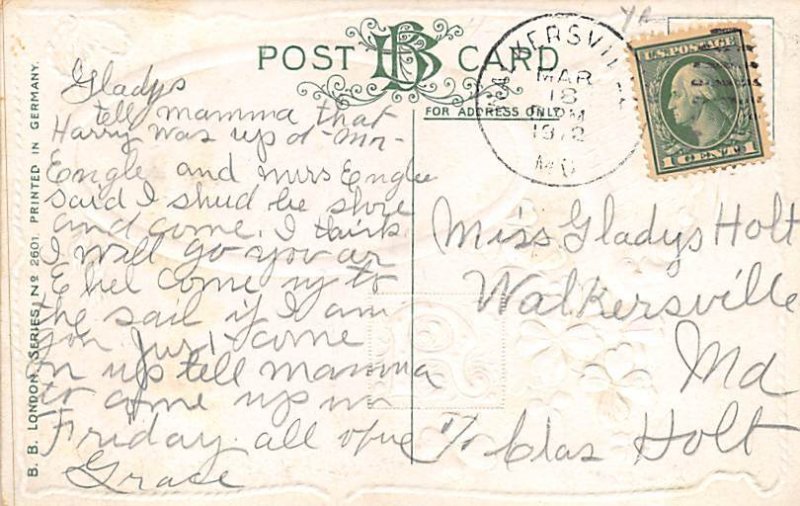 POST CARD
BB
FOR ADDRESS ONLY
WALKERSVILLE
MAR
18
PM
1912
MD
U.S. POSTAGE
1 CENT 1
B. B. LONDON, SERIES, No 2601. PRINTED IN GERMANY.
Gladys
tell mamma that
Harry was up at Mr-
Engle and mrs Engle
said I shud be shore
and come. I think
I will go you ar
Ethel come up to
the sail if I am
gon Just come
on up tell mamma
to come up on
Friday all of you
Grace
Miss Gladys Holt
Walkersville
Md
c/o Clas Holt